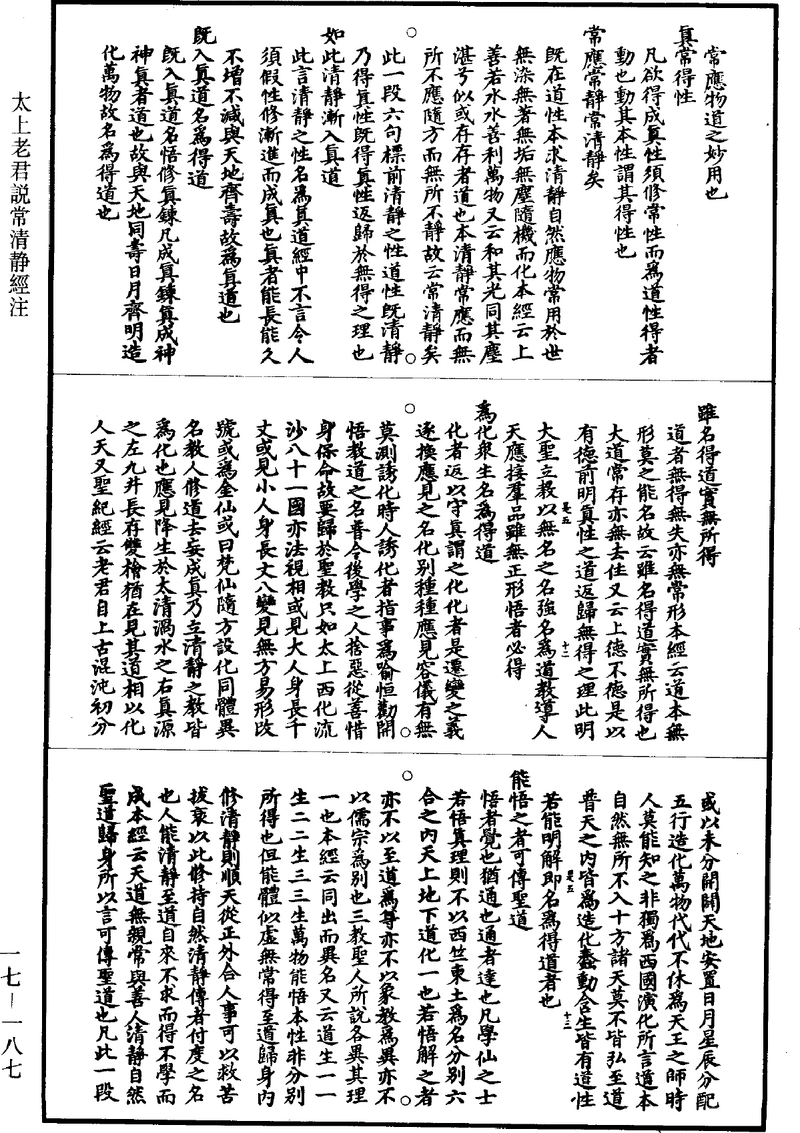 太上老君説常清静經注
常應物道之妙用也
真常得性
凡欲得成真性須修常性而爲道性得者
動也動其本性謂其得性也
常應常静常清静矣
既在道性本求清静自然應物常用於世
無染無著無垢無塵隨機而化本經云上
善若水水善利萬物又云和其光同其塵
湛兮似或存存者道也本清静常應而無
所不應隨方而無所不静故云常清静矣
此一段六句標前清静之性道性既清静
乃得真性既得真性返歸於無得之理也
如此清静漸入真道
此言清静之性名爲真道經中不言令人
須假性修漸進而成真也真者能長能久
不增不減與天地齊壽故爲真道也
既入真道名爲得道
既入真道名悟修真鍊凡成真鍊真成神
神真者道也故與天地同壽日月齊明造
化萬物故名爲得道也
雖名得道實無所得
道者無得無失亦無常形本經云道本無
形莫之能名故云雖名得道實無所得也
大道常存亦無去住又云上德不德是以
有德前明真性之道返歸無得之理此明
是五
十二
大聖立教以無名之名強名爲道教導人
天應接羣品雖無正形悟者必得
爲化衆生名爲得道
化者返以守真謂之化化者是遷變之義
逐換應見之名化别種種應見容儀有無
莫測誘化時人誘化者指事爲喻恒勸開
悟教道之名普令後學之人捨惡從善惜
身保命故要歸於聖教只如太上西化流
沙八十一國亦法視相或見大人身長千
丈或見小人身長丈八變見無方易形改
號或爲金仙或曰梵仙隨方設化同體異
名教人修道去妄成真乃立清静之教皆
爲化也應見降生於太清渦水之右真源
之左九井長存雙檜猶在見其道相以化
人天又聖紀經云老君自上古混沌初分
或以未分開闢天地安置日月星辰分配
五行造化萬物代代不休爲天王之師時
人莫能知之非獨爲西國演化所言道本
自然無所不入十方諸天莫不皆弘至道
普天之内皆爲造化蠢動含生皆有道性
是五
十三
若能明解即名爲得道者也
能悟之者可傳聖道
悟者覺也猶通也通者達也凡學仙之士
若悟真理則不以西竺東土爲名分别六
合之内天上地下道化一也若悟解之者
亦不以至道爲尊亦不以象教爲異亦不
以儒宗爲别也三教聖人所説各異其理
一也本經云同出而異名又云道生一一
生二二生三三生萬物能悟本性非分别
所得也但能體似虚無常得至道歸身内
修清静則順天從正外合人事可以救苦
拔衰以此修持自然清静傳者付度之名
也人能清静至道自來不求而得不學而
成本經云天道無親常與善人清静自然
聖道歸身所以言可傳聖道也凡此一段
一七—一八七